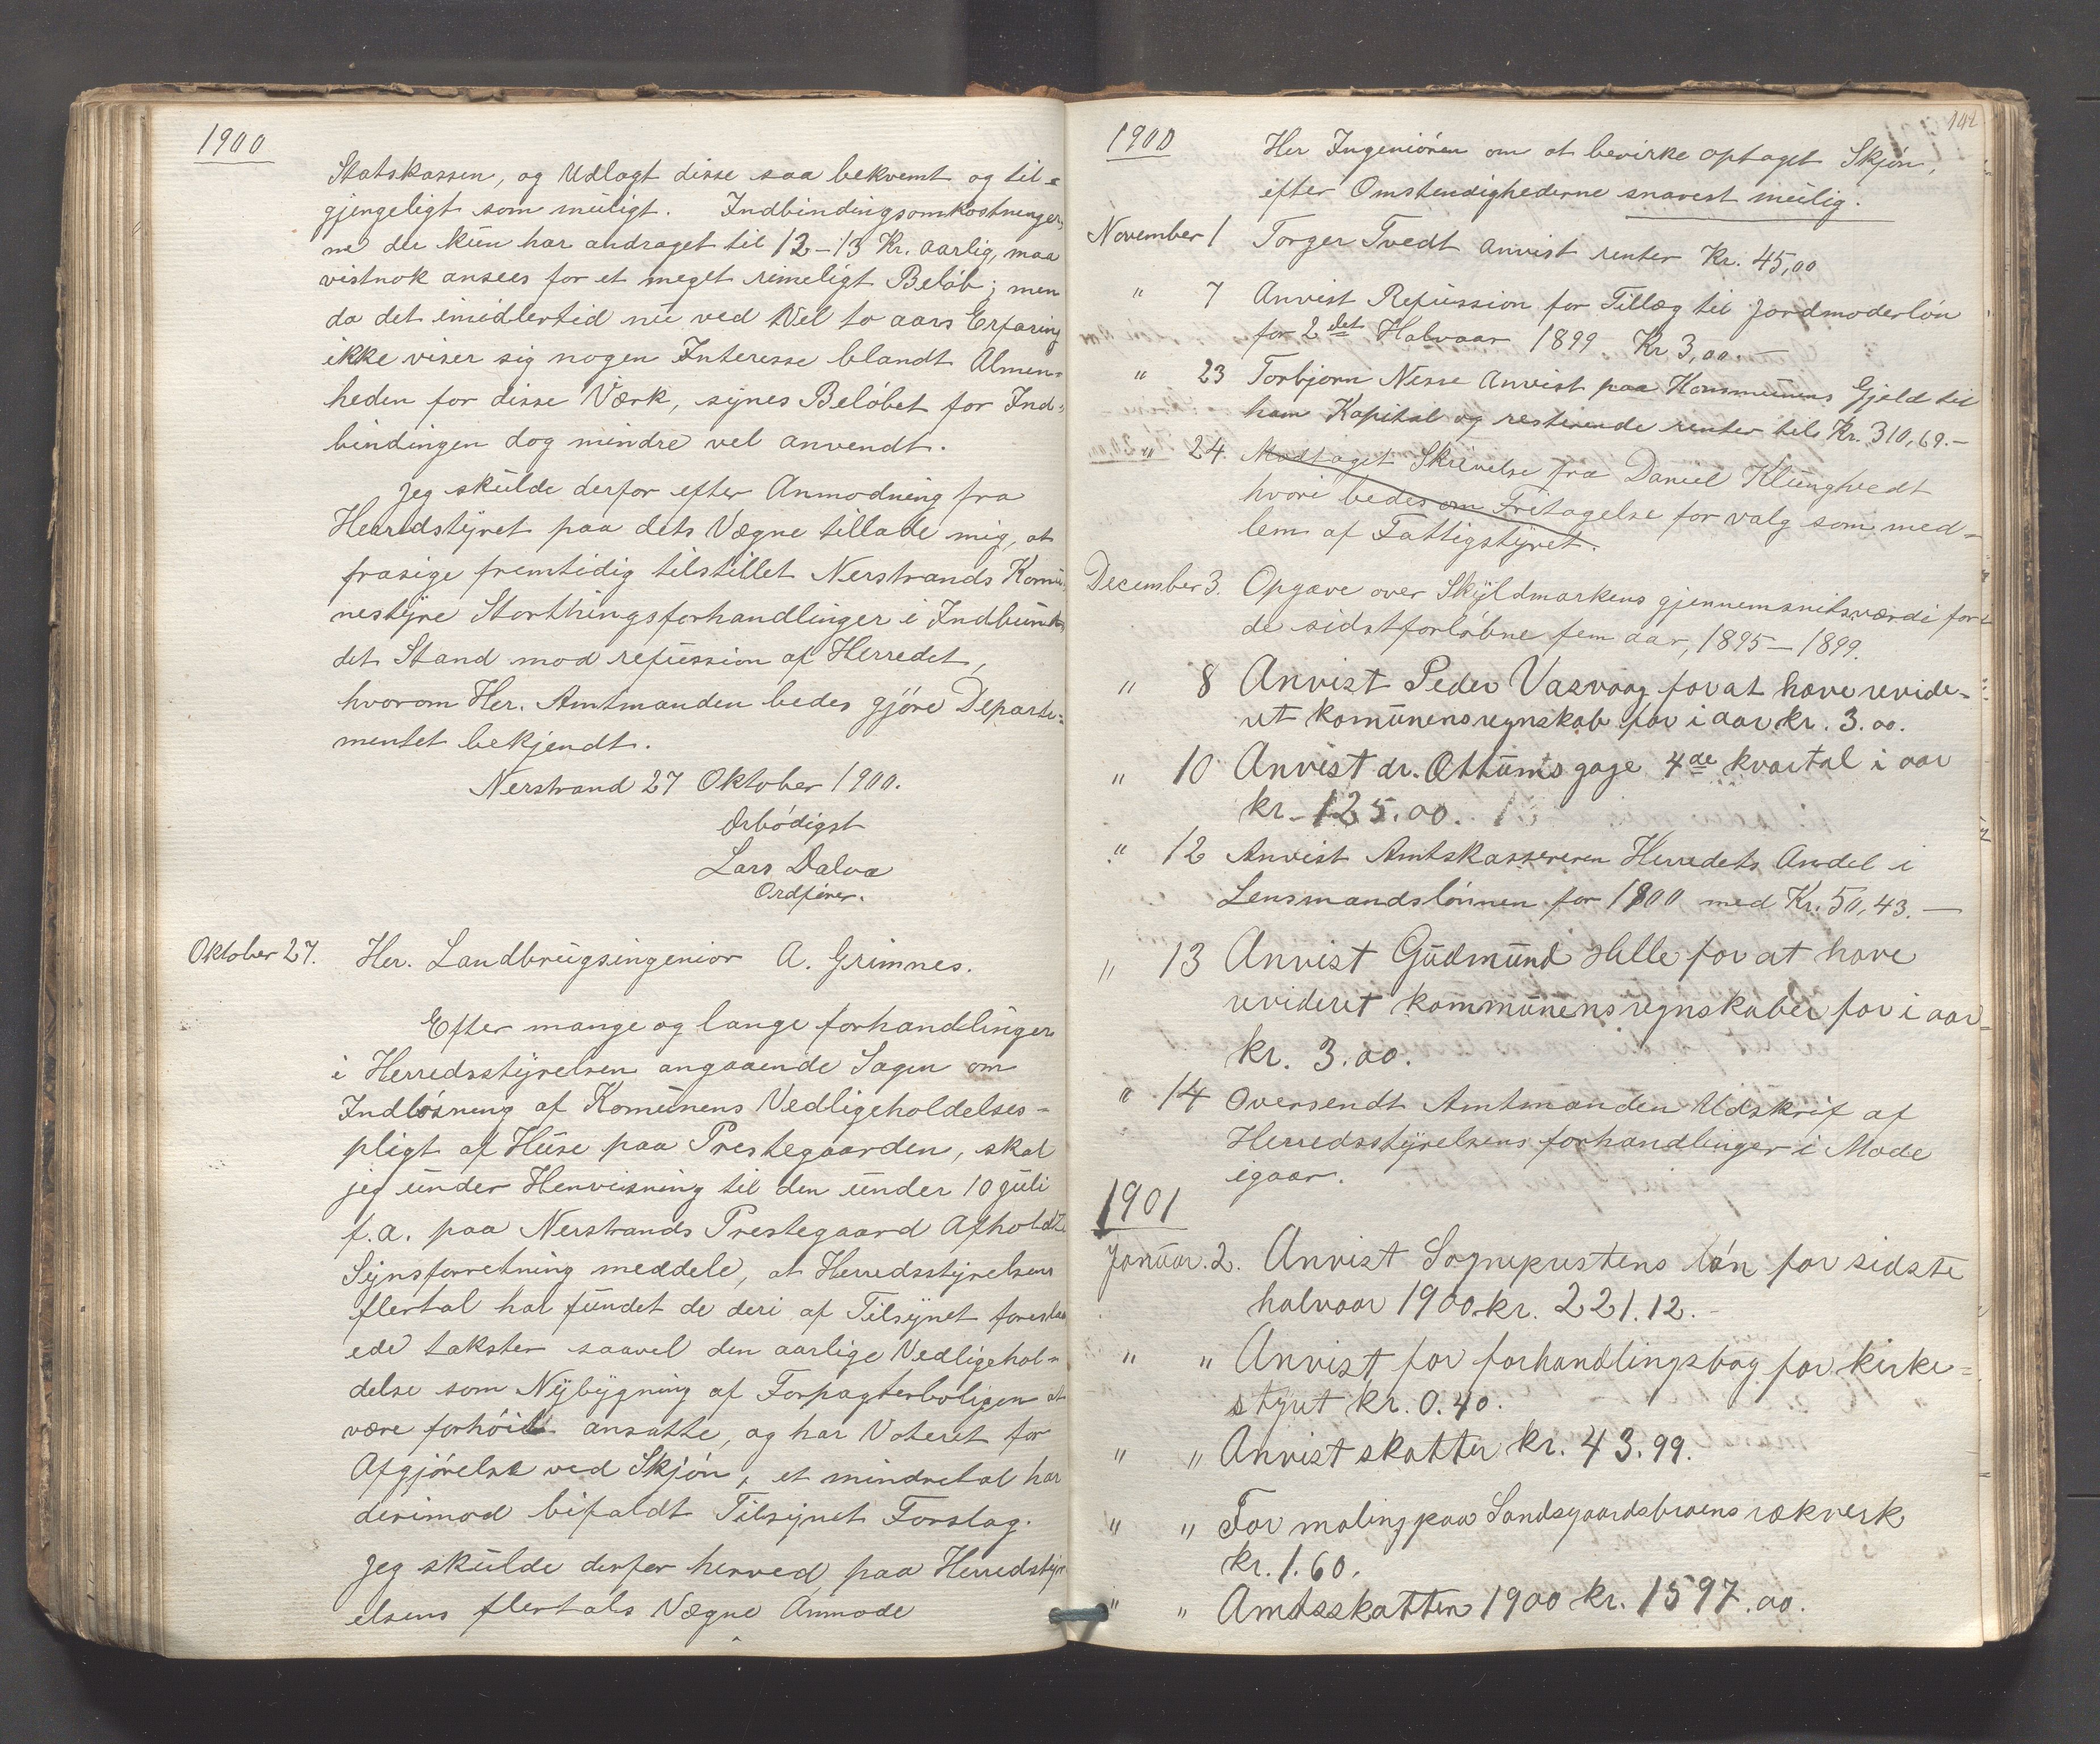 1900
Statskassen, og Udlagt disse saa bekvemt og til=
gjengeligt som muligt. Indbindingsomkostninger,
ne der kun har andraget til 12-13 Kr. aarlig, maa
vistnok ansees for et meget rimeligt Beløb; men
da det imidlertid nu ved Vel to aars Erfaring
ikke viser sig nogen Interesse blandt Almen=
heden for disse Værk, synes Beløbet for Ind=
bindingen dog mindre vel anvendt.
Jeg skulde derfor efter Anmodning fra
Herredstyret paa dets Vægne tillade mig, at
frasige fremtidig tilstillet Nerstrands Komu
nestyre Storthingsforhandlinger i Indbun
det Stand mod refussion af Herredet,
hvorom Her. Amtmanden bedes gjøre Departe=
mentet bekjendt.
Nerstrand 27 Oktober 1900.
Ærbødigst
Lars Dalva
Ordfører.
Oktober 27. Her. Landbrugsingeniør A. Grimnes.
Efter mange og lange forhandlinger
i Herredsstyrelsen angaaende Sagen om
Indløsning af Komunens Vedligeholdelses-
pligt af Huse paa Prestegaarden, skal
jeg under Henvisning til den under 10 Juli
f.a. paa Nerstrands Prestegaard Afholdte
Synsforretning meddele, at Herredsstyrelsens
flertal har fundet de deri af Tilsynet foreslaa
ede takster saavel den aarlige Vedligehol=
delse som Nybygning af Forpagterboligen at
være forhøit ansatte, og har Voteret for
Afgjørelse ved Skjøn, et mindretal har
derimod bifaldt Tilsynet Forslag.
Jeg skulde derfor herved paa Herredsstyr
elsens flertals Vægne Anmode
141
1900
Her Ingeniøren om at bevirke optaget Skjøn,
efter Omstendighederne snarest mulig.
November 1 Torger Tvedt anvist renter Kr. 45,00
" 7 Anvist Refussion for Tillæg til Jordmoderløn
for 2det Halvaar 1899 Kr 3,00.—
" 23 Torbjorn Nesse Anvist paa Kommunens Gjeld til
ham Kapital og resterende renter tils Kr. 310,69.-
" 24. Modtaget Skrivelse fra Daniel Klungtvedt
hvori bedes om Fritagelse for valg som med=
lem af Fattigstyret.
December 3. Opgave over Skyldmarkens gjennemsnitsværdi for
de sidstforløbne fem aar, 1895-1899.
" 8 Anvist Peder Vasvaag for at have revide-
ret komunensregnskab for i aar kr. 3.00.
" 10 Anvist dr. Ottums gage 4de kvartal i aar
kr. 125.00.
" 12 Anvist Amtskassereren Herredets Andel i
Lensmandslønnen for 1900 med Kr. 50,43.—
" 13 Anvist Gudmund Helle for at have
revideret kommunensregnskaber for i aar-
kr. 3.00.
" 14 Oversendt Amtmanden Udskrif af
Herredsstyrelsens forhandlinger i Mode
igaar.
1901
Januar. 2. Anvist Sogneprestens løn for sidste
halvaar 1900 kr. 221.12.-
" " Anvist for forhandlingsbog for kirke=
styret kr. 0.40.
" " Anvist skatter kr. 43.99.
" " For maling paa Sandsgaardsbroens rækverk
kr. 1.60.
" " Amtsskatten 1900 kr. 1597.00.